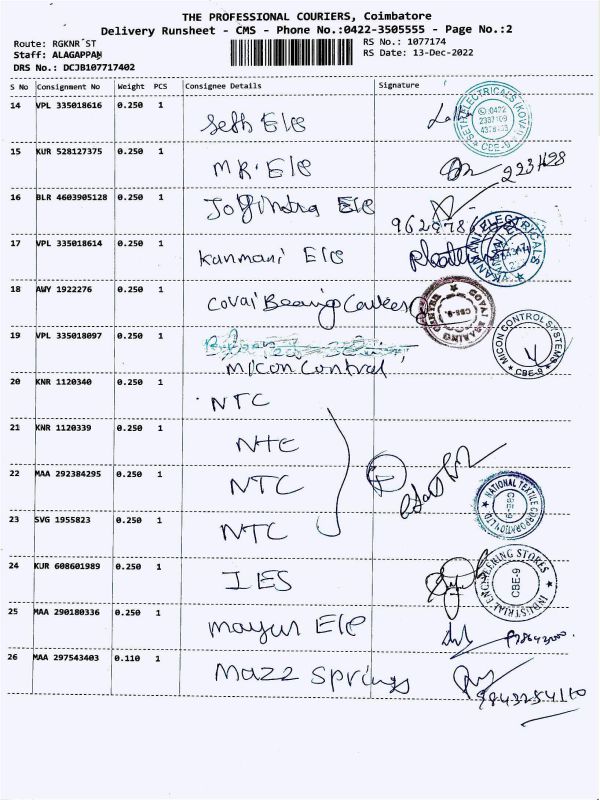 THE PROFESSIONAL COURIERS, Coimbatore
Delivery Runsheet - CMS - Phone No.:0422-3505555 - Page No.:2
Route: RGKNR ST
RS No.: 1077174
Staff: ALAGAPPAN
RS Date: 13-Dec-2022
DRS No.: DCJB107717402
S No Consignment No Weight PCS Consignee Details Signature
14 VPL 335018616 0.250 1 Seth Ele
SETH ELECTRICALS (KOVAI) CBE-9
15 KUR 528127375 0.250 1 MR. Ele
16 BLR 4603905128 0.250 1 Jogindra Ele
17 VPL 335018614 0.250 1 Kanmani Ele
KANMANI ELECTRICALS
18 AWY 1922276 0.250 1 Covai Bearing
COVAI BEARING CENTRE CBE-9.
19 VPL 335018097 0.250 1 Micon Control
MICON CONTROL SYSTEMS CBE-9
20 KNR 1120340 0.250 1 NTC
21 KNR 1120339 0.250 1 NTC
22 MAA 292384295 0.250 1 NTC
NATIONAL TEXTILE CORPORATION LTD. CBE-9
23 SVG 1955823 0.250 1 NTC
24 KUR 608601989 0.250 1 IES
INDUSTRIAL ENGINEERING STORES CBE-9
25 MAA 290180336 0.250 1 Mayur Ele
26 MAA 297543403 0.110 1 Mazz Springs